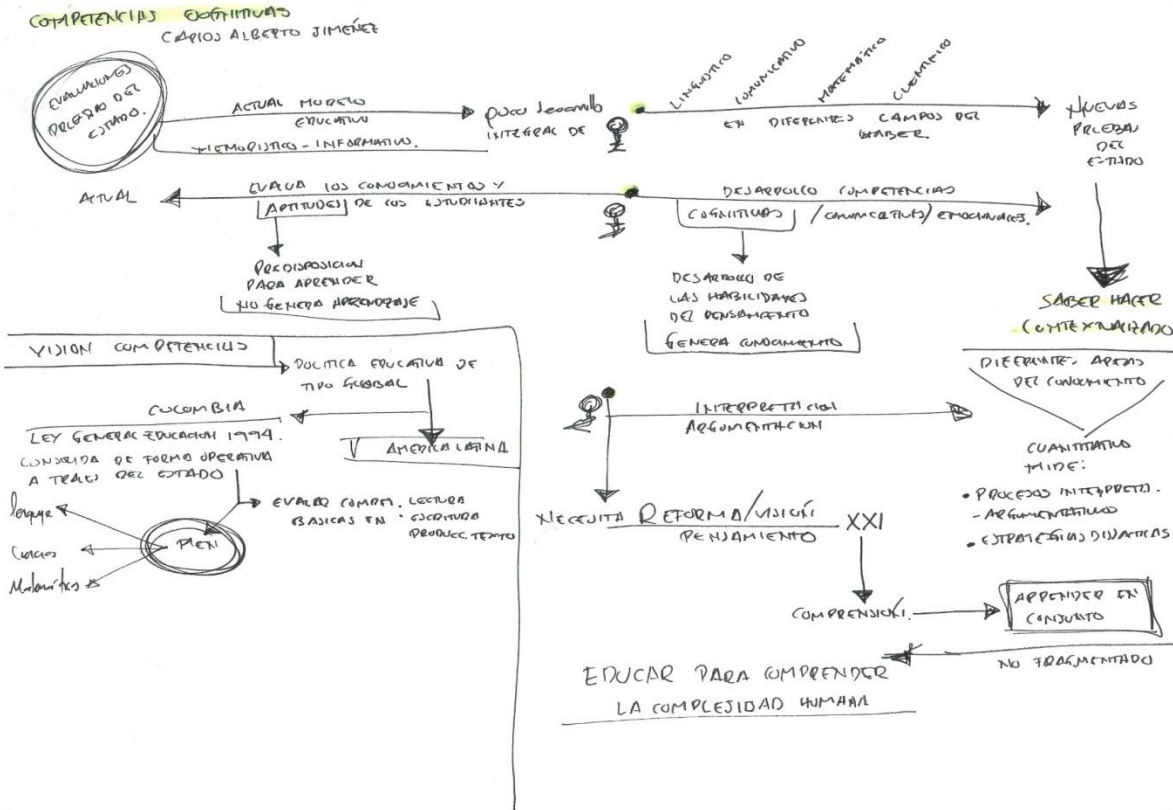 COMPETENCIAS COGNITIVAS
CARLOS ALBERTO JIMEÑEZ
EVALUACIONES
PRUEBAS DEL
ESTADO.
ACTUAL MODELO
EDUCATIVO
MEMORISTICO - INFORMATIVO.
poco desarrollo
INTEGRAL DE
LINGUISTICO
COMUNICATIVO
MATEMATICO
CIENTIFICO
EN DIFERENTES CAMPOS DEL
SABER.
NUEVAS
PRUEBAS
DEL
ESTADO
ACTUAL
EVALUA LOS CONOCIMIENTOS Y
APTITUDES DE LOS ESTUDIANTES
DESARROLLO COMPETENCIAS
COGNITIVAS / COMUNICATIVAS / EMOCIONALES.
PREDISPOSICION
PARA APRENDER
NO GENERA APRENDIZAJE
DESARROLLO DE
LAS HABILIDADES
DEL PENSAMIENTO
GENERA CONOCIMIENTO
SABER HACER
CONTEXTUALIZADO
DIFERENTE. AREAS
DEL CONOCIMIENTO
CUANTITATIVO
MIDE:
• PROCESOS INTERPRETA.
- ARGUMENTATIVOS
• ESTRATEGIAS DIDACTICAS
VISION COMPETENCIAS
POLITICA EDUCATIVA DE
TIPO GLOBAL
COLOMBIA
AMERICA LATINA
LEY GENERAL EDUCACION 1994.
CONSOLIDA DE FORMA OPERATIVA
A TRAVES DEL ESTADO
EVALUAR COMPET. LECTURA
BASICAS EN · ESCRITURA
PRODUCC TEXTO
lenguaje
Ciencias
Matemáticas
INTERPRETACION
ARGUMENTACION
NECESITA REFORMA/VISIÓN XXI
PENSAMIENTO
COMPRENSIÓN.
APRENDER EN
CONJUNTO
NO FRAGMENTADO
EDUCAR PARA COMPRENDER
LA COMPLEJIDAD HUMANA